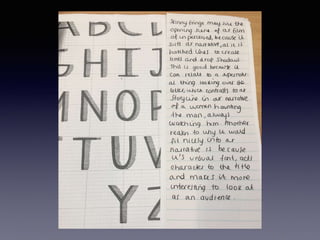 ABCD
GHIJ
MNOP
TUV
YZ
may use the
opening scene of a film
because it
narrative, as it is
hatched lines to create
lines and drop shadow.
This is good because it
can relate to a
thing looking over the
letter, which contrasts to a
storyline in a narrative
of a woman haunting
the man, always
watching him. Another
reason to why it would
fit nicely into a
narrative is because
it's visual font, adds
character to the title
and makes it more
interesting to look at
as an audience.